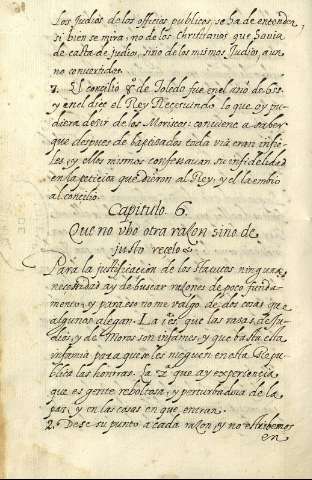 los Judios de los officios publicos, se ha de entender
si bien se mira, no de los Christianos que havia
de casta de judios, sino de los mismos Judios, aun
no convertidos.
7. El concilio 8º de Toledo fue en el año de 653
y en el dice el Rey Recesvindo lo que oy pu-
diera desir de los Moriscos: conviene a saber
que despues de baptisados toda via eran infie-
les, y ellos mismos confessavan su infidelidad
en la peticion que dieron al Rey, y el la embio
al concilio.
Capitulo 6.
Que no ubo otra raçon sino de
justo recelo.
Para la justificacion de los statutos ninguna
necessidad ay de buscar raçones de poco funda-
mento, y para eso no me valgo de dos cosas que
algunos alegan. La 1ª es, que las rasas de Ju-
dios, y de Moros son infames, y que basta esta
infamia para que se les nieguen en esta Repu-
blica las honrras. La 2ª que ay experiencia
que es gente reboltosa, y perturbadora de la
paz, y en las casas en que entran.
2. Dese su punto a cada raçon, y no estribemos
en